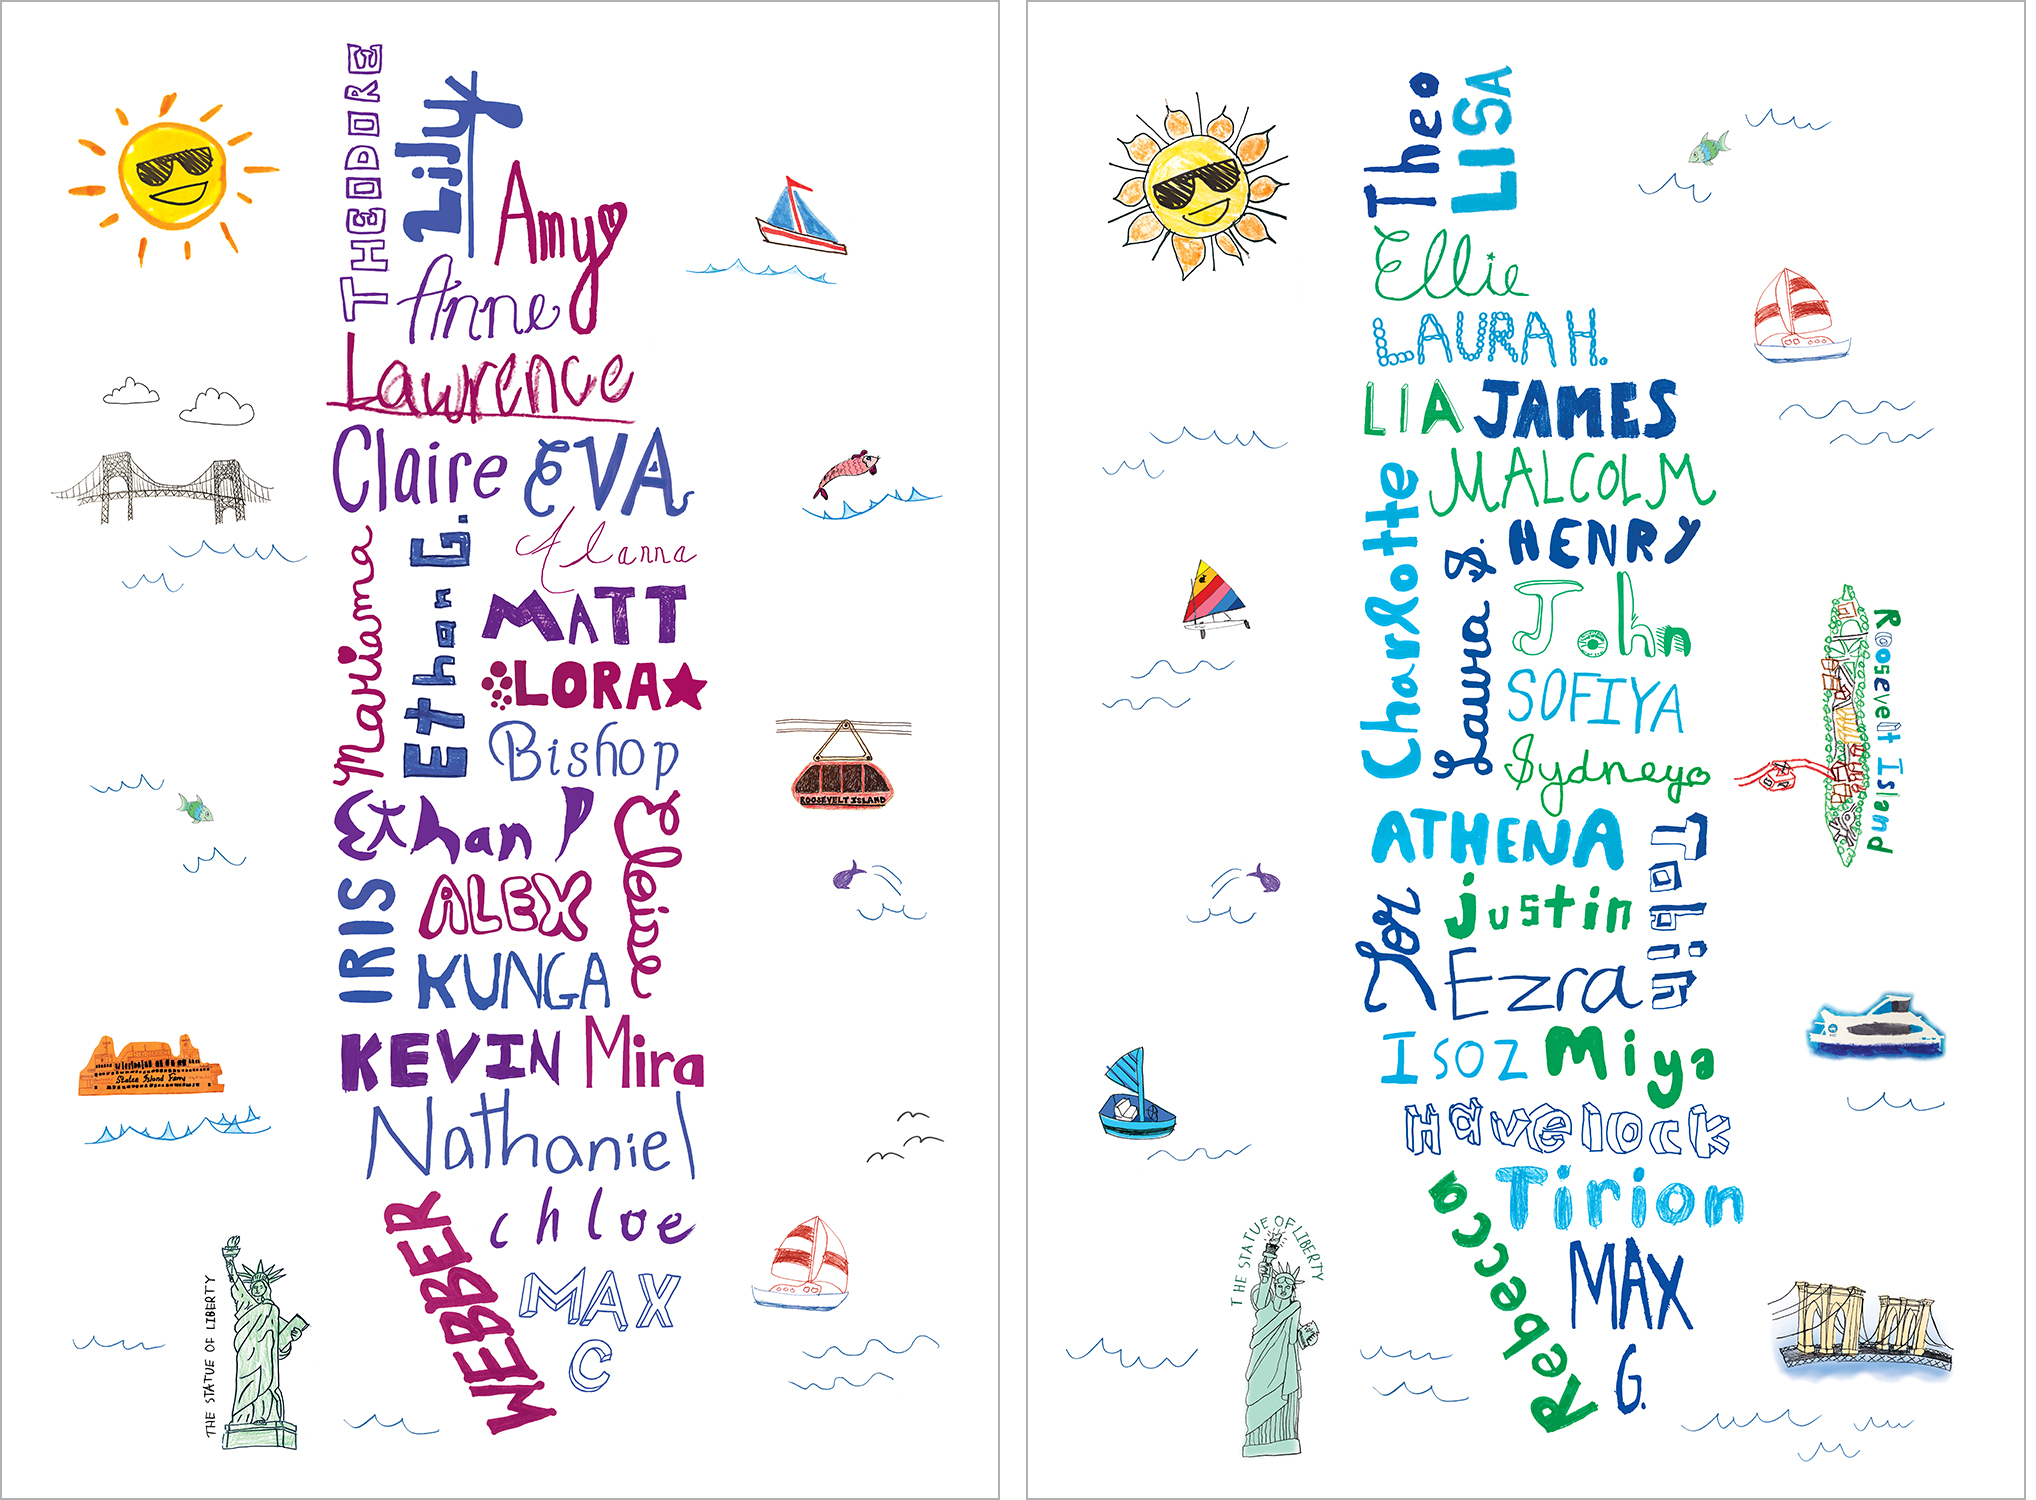 THEODORE
Lily
Amy
Anne
Lawrence
Claire EVA
Mariama
Ethan G.
Alanna
MATT
LORA
Bishop
Ethan P
Eloise
IRIS
ALEX
KUNGA
KEVIN Mira
Nathaniel
WEBBER
chloe
MAX
C
ROOSEVELT ISLAND
Staten Island Ferry
THE STATUE OF LIBERTY
Theo
LISA
Ellie
LAURA H.
LIA JAMES
Charlotte
MALCOLM
Laura S.
HENRY
John
SOFIYA
Sydney
ATHENA
Tobin
justin
Ezra
ISOZ Miya
Havelock
Tirion
Rebecca
MAX
G.
Roosevelt Island
THE STATUE OF LIBERTY